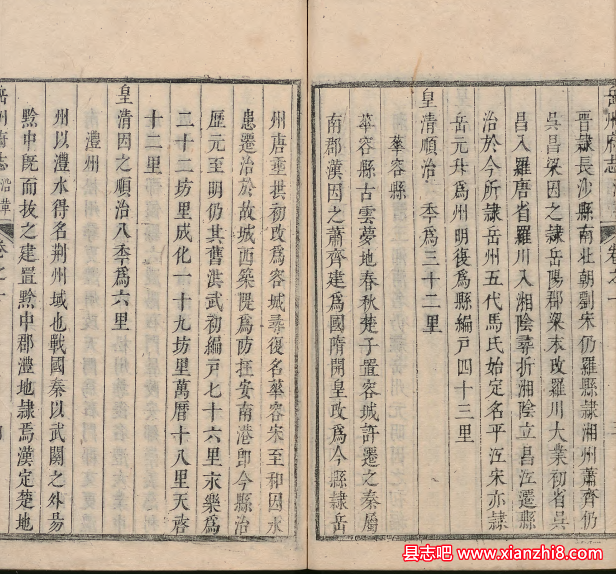 晉隸長沙縣南北朝劉宋仍羅縣隸湘州蕭齊仍
吳昌梁因之隸岳陽郡梁末改羅川大業初省吳
昌入羅唐省羅川入湘陰尋折湘陰立昌江遷縣
治於今所隸岳州五代馬氏始定名平江宋亦隸
岳元升爲州明復爲縣編戶四十三里
皇清順治 季爲三十二里
華容縣
華容縣古雲夢地春秋楚子置容城許遷之秦屬
南郡漢因之蕭齊建爲國隋開皇改爲今縣隸岳
州唐垂拱初改爲容城尋復名華容宋至和因水
患遷治於故城西築隄爲防在安南港卽今縣治
歷元至明仍其舊洪武初編戶七十六里永樂爲
二十二坊里成化一十九坊里萬曆十八里天啓
十二里
皇清因之順治八季爲六里
澧州
州以澧水得名荆州域也戰國秦以武關之外易
黔中旣而拔之建置黔中郡澧地隸焉漢定楚地
岳州府志 沿革 卷之
县志吧 www.xianzhi8.com